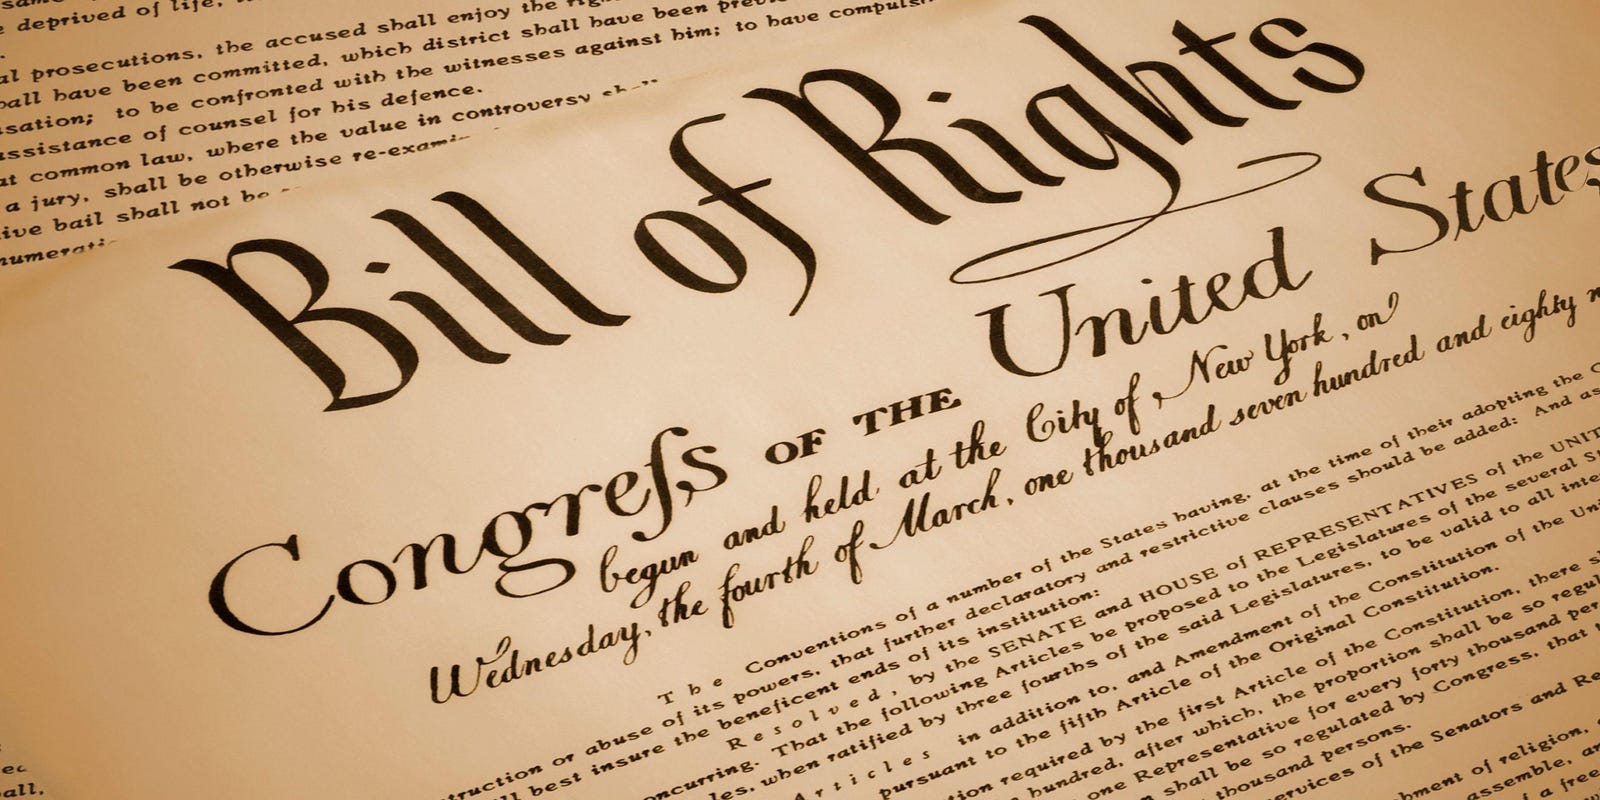 deprived of life,
prosecutions, the accused shall enjoy the
have been committed, which district shall have been
to be confronted with the witnesses against him; to have
assistance of counsel for his defence.
at common law, where the value in controversy
a jury, shall be otherwise
bail shall not be
Bill of Rights
Congreſs OF THE United States
begun and held at the City of New York, on
Wednesday, the fourth of March, one thousand seven hundred and eighty
The Conventions of a number of the States having, at the time of their adopting the
or abuse of its powers, that further declaratory and restrictive clauses should be added: And as
best insure the beneficent ends of its institution:
Resolved, by the SENATE and HOUSE of REPRESENTATIVES of the
concurring. That the following Articles be proposed to the Legislatures of the several
when ratified by three fourths of the said Legislatures, to be valid to all
Articles in addition to, and Amendment of the Constitution of the
pursuant to the fifth Article of the Original Constitution.
required by the first Article of the Constitution, there
hundred, after which, the proportion shall be so
one Representative for every forty thousand
shall be so regulated by Congress, that
thousand persons.
services of the Senators and
of religion,
assemble,
of a free